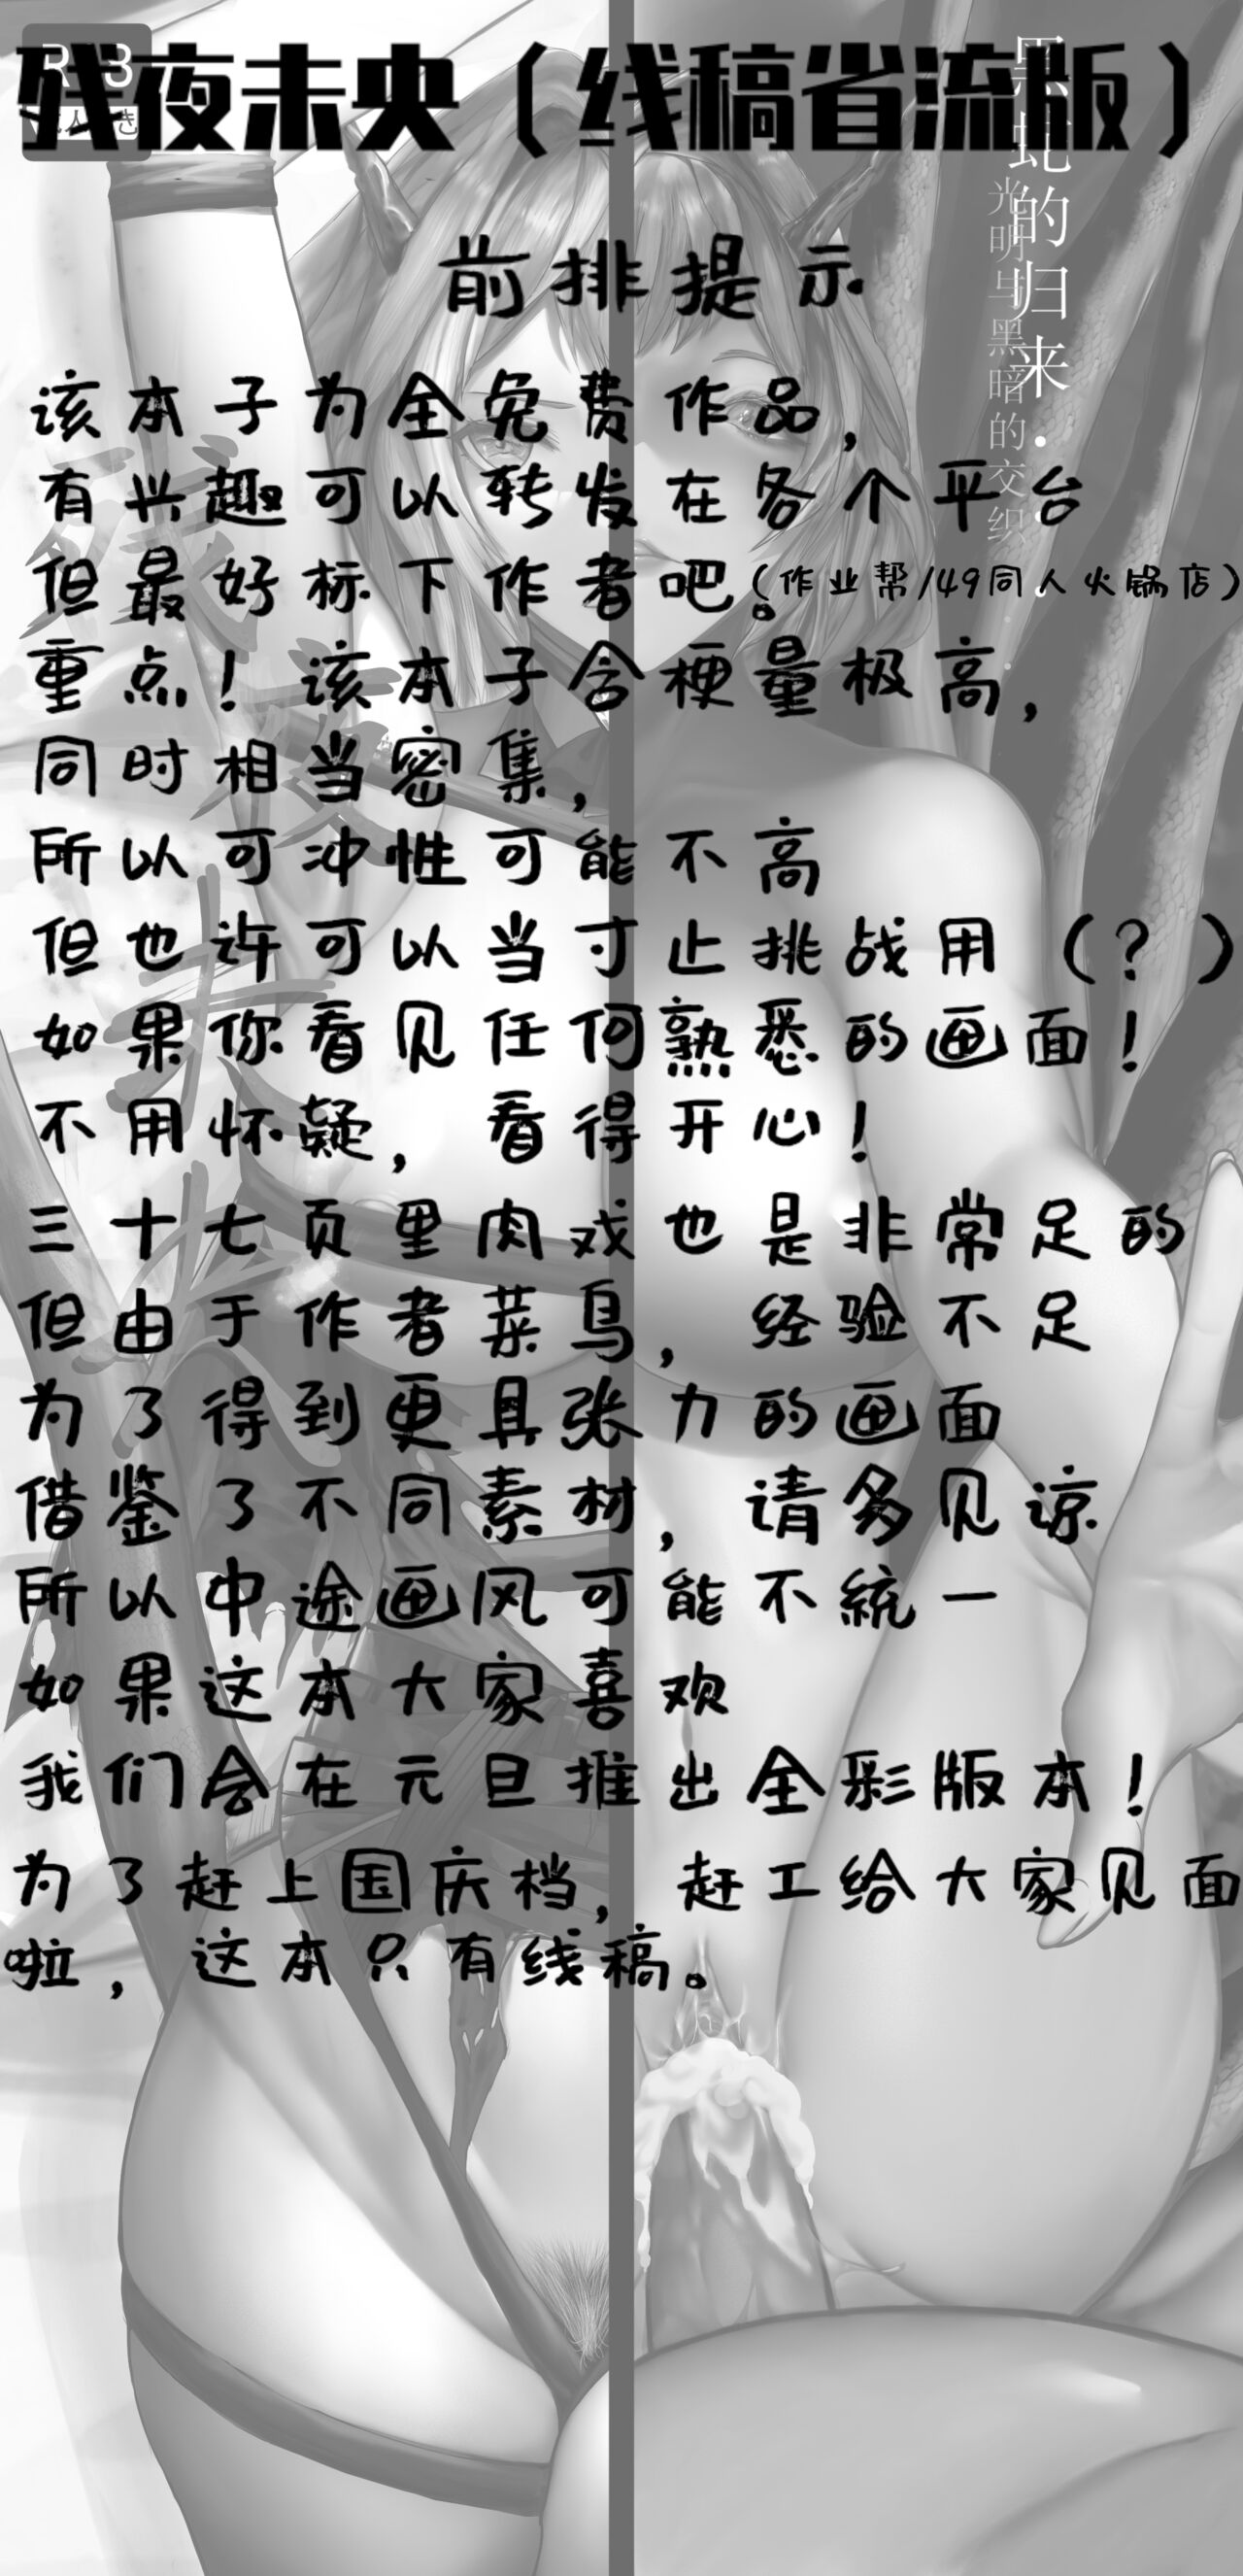 残夜未央（线稿省流版）
前排提示
该本子为全免费作品，
有兴趣可以转发在各个平台
但最好标下作者吧。（作业帮/49同人火锅店）
重点！该本子含梗量极高，
同时相当密集，
所以可冲性可能不高
但也许可以当寸止挑战用（？）
如果你看见任何熟悉的画面！
不用怀疑，看得开心！
三十七页里肉戏也是非常足的
但由于作者菜鸟，经验不足
为了得到更具张力的画面
借鉴了不同素材，请多见谅
所以中途画风可能不統一
如果这本大家喜欢
我们会在元旦推出全彩版本！
为了赶上国庆档，赶工给大家见面
啦，这本只有线稿。
黑蛇的归来
光明与黑暗的交织